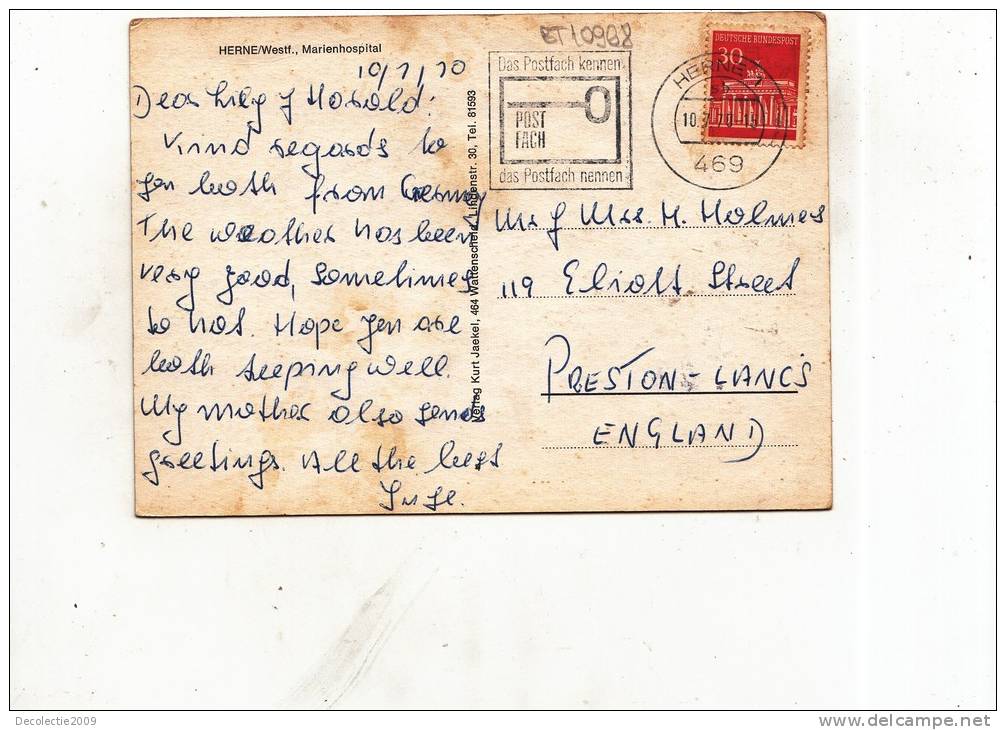 HERNE/Westf., Marienhospital
Dear Lily & Harald:
Kind regards to
you both from Germany
The weather has been
very good, sometimes
to hot. Hope you are
both keeping well.
My mother also sends
greetings. All the best
Inge.
Verlag Kurt Jaekel, 464 Wattenscheid, Lindenstr. 30, Tel. 81593
Das Postfach kennen
POST
FACH
das Postfach nennen
HERNE 1
469
DEUTSCHE BUNDESPOST
30
Mr & Mrs. H. Holmes
119 Eliott Street
PRESTON - LANCS
ENGLAND
Decolectie2009
www.delcampe.net